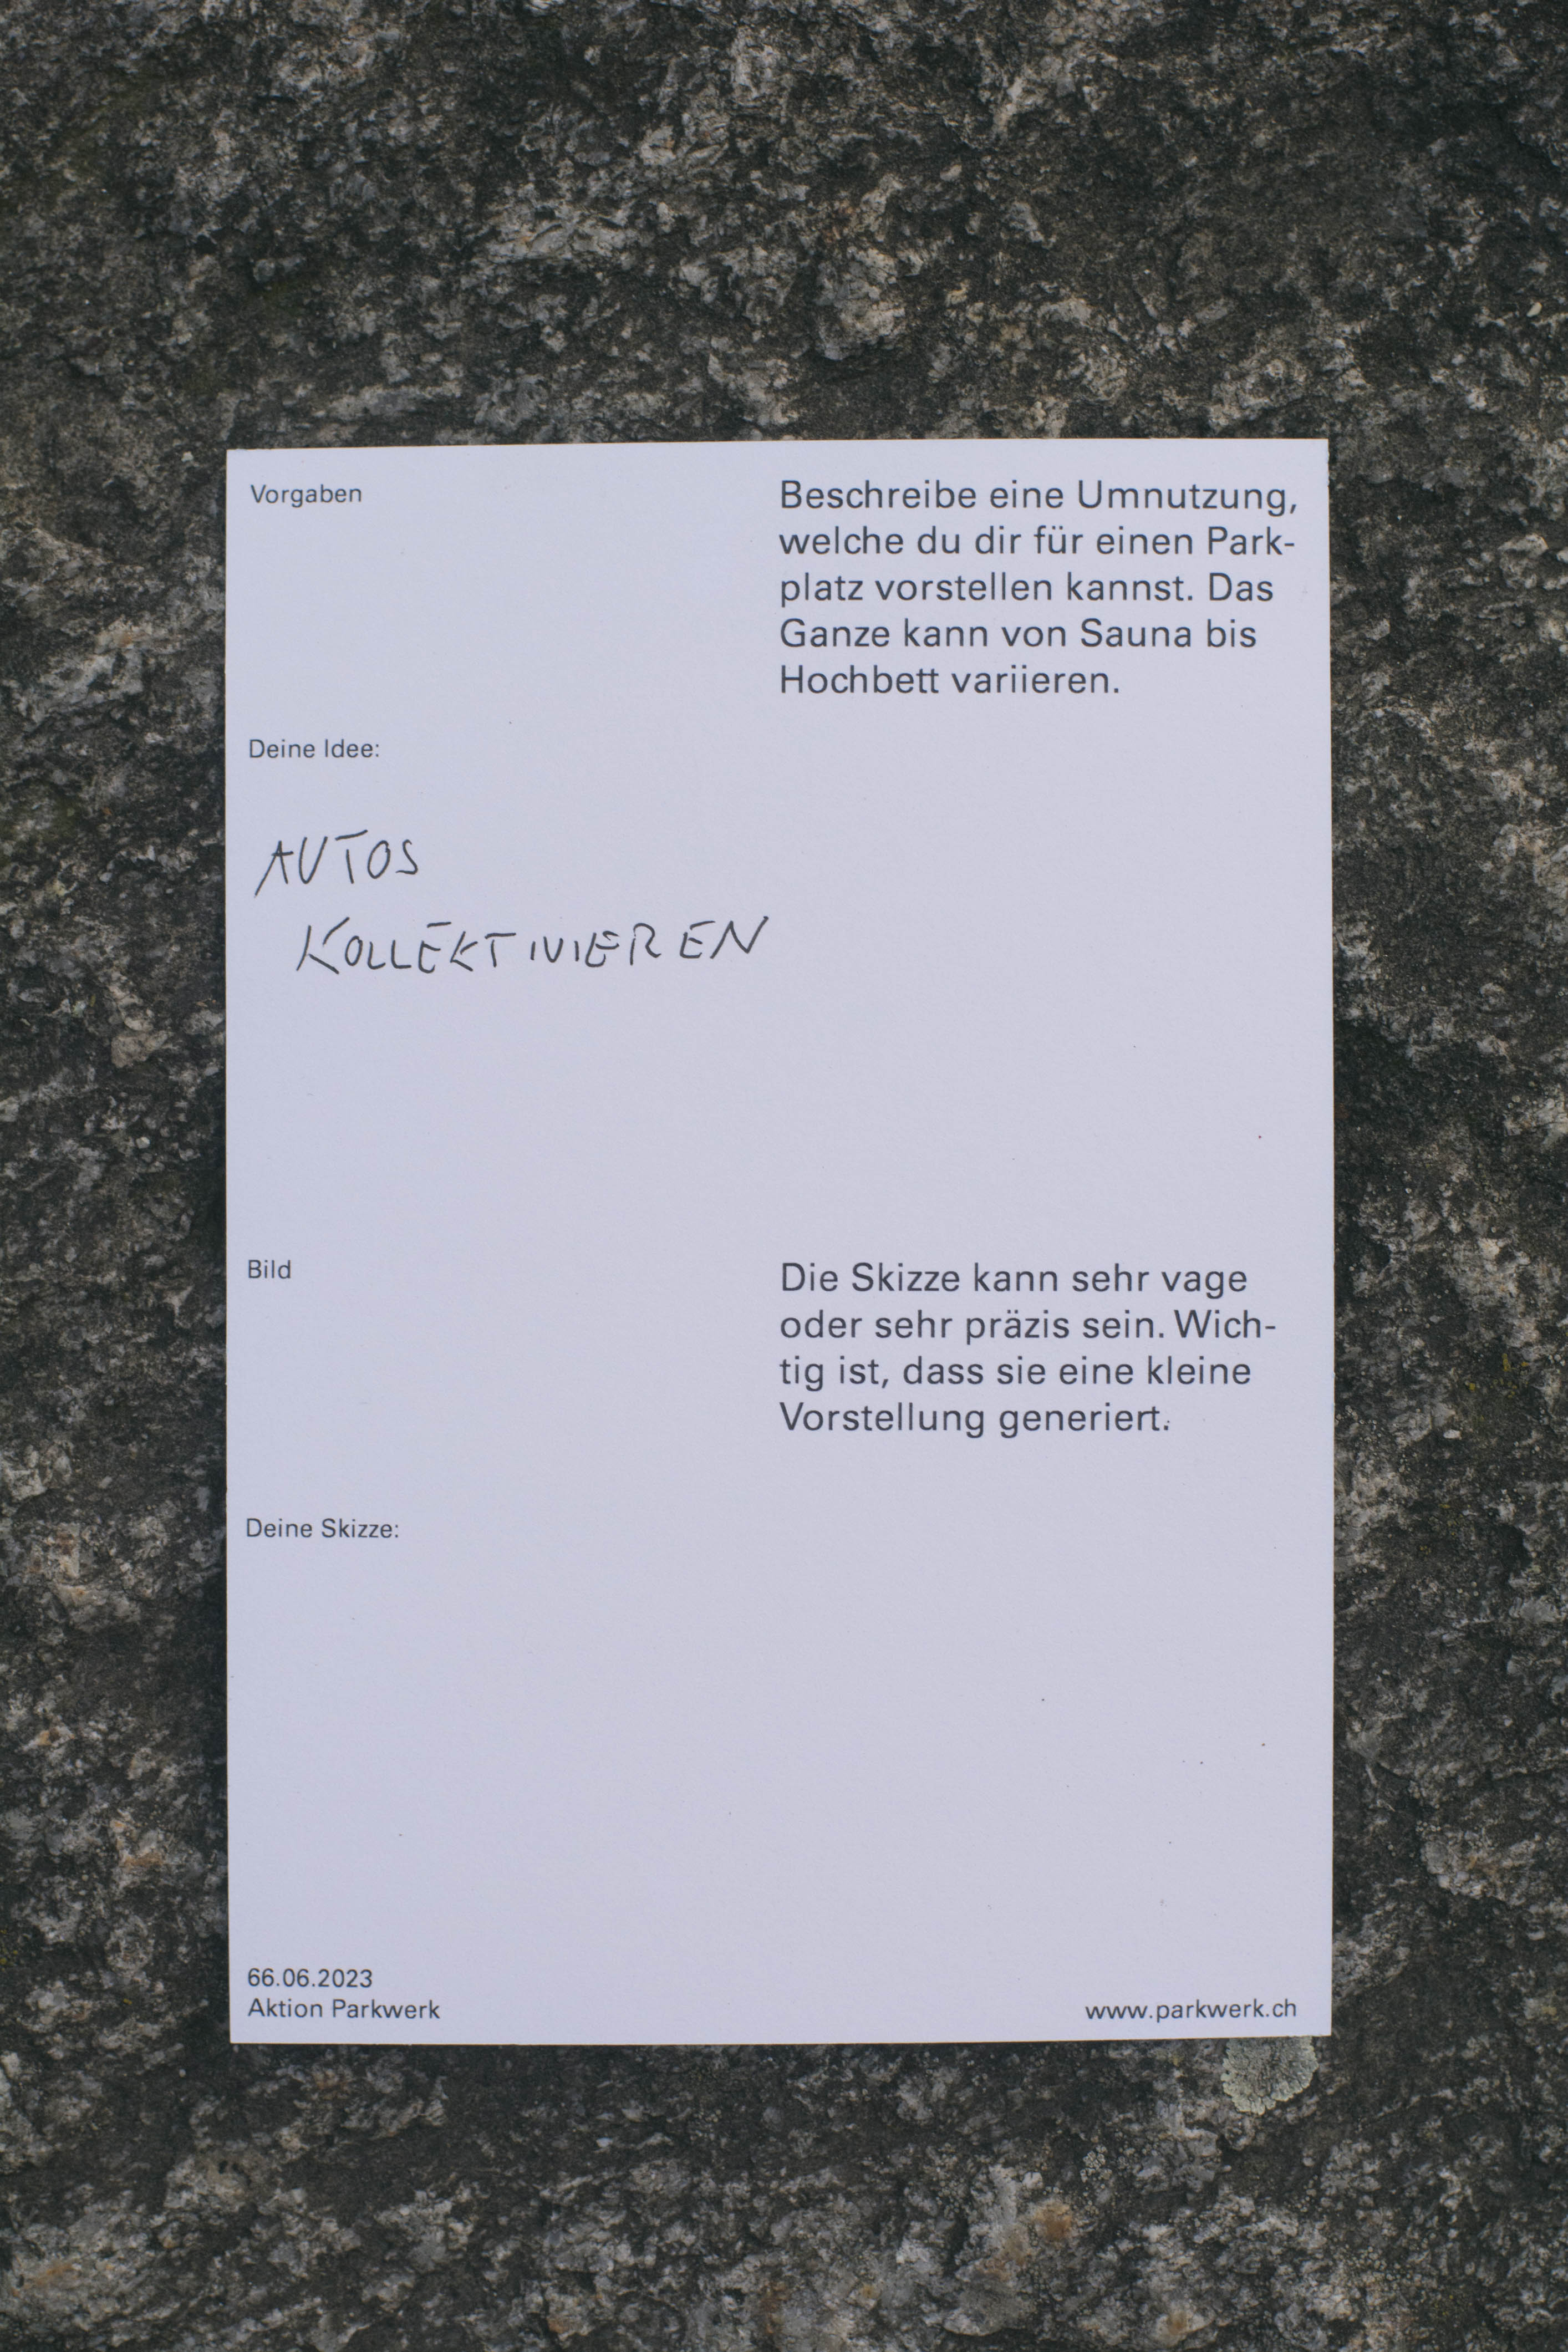 Vorgaben
Beschreibe eine Umnutzung,
welche du dir für einen Park-
platz vorstellen kannst. Das
Ganze kann von Sauna bis
Hochbett variieren.
Deine Idee:
AUTOS
KOLLEKTIVIEREN
Bild
Die Skizze kann sehr vage
oder sehr präzis sein. Wich-
tig ist, dass sie eine kleine
Vorstellung generiert.
Deine Skizze:
66.06.2023
Aktion Parkwerk
www.parkwerk.ch